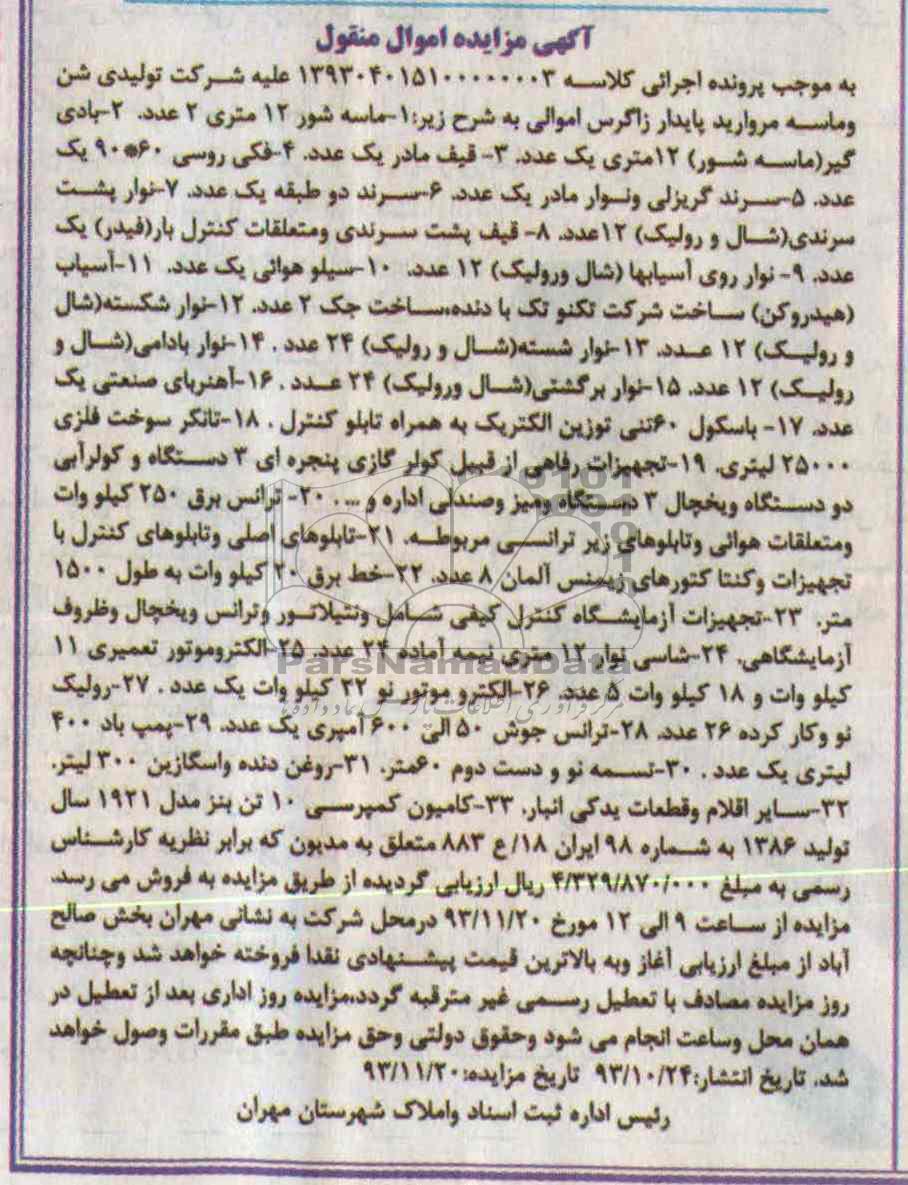 آگهی مزایده اموال منقول
به موجب پرونده اجرائی کلاسه ۱۳۹۳۰۴۰۱۵۱۰۰۰۰۰۰۰۳ علیه شرکت تولیدی شن
وماسه مروارید پایدار زاگرس اموالی به شرح زیر:۱-ماسه شور ۱۲ متری ۲ عدد. ۲-بادی
گیر(ماسه شور) ۱۲متری یک عدد. ۳- قیف مادر یک عدد. ۴-فکی روسی ۶۰*۹۰ یک
عدد. ۵-سرند گریزلی ونوار مادر یک عدد. ۶-سرند دو طبقه یک عدد. ۷-نوار پشت
سرندی(شال و رولیک) ۱۲عدد. ۸- قیف پشت سرندی ومتعلقات کنترل بار(فیدر) یک
عدد. ۹- نوار روی آسیابها (شال ورولیک) ۱۲ عدد. ۱۰-سیلو هوائی یک عدد. ۱۱-آسیاب
(هیدروکن) ساخت شرکت تکنو تک با دنده،ساخت جک ۲ عدد. ۱۲-نوار شکسته(شال
و رولیک) ۱۲ عدد. ۱۳-نوار شسته(شال و رولیک) ۲۴ عدد . ۱۴-نوار بادامی(شال و
رولیک) ۱۲ عدد. ۱۵-نوار برگشتی(شال ورولیک) ۲۴ عدد . ۱۶-آهنربای صنعتی یک
عدد. ۱۷- باسکول ۶۰تنی توزین الکتریک به همراه تابلو کنترل . ۱۸-تانکر سوخت فلزی
۲۵۰۰۰ لیتری. ۱۹-تجهیزات رفاهی از قبیل کولر گازی پنجره ای ۳ دستگاه و کولرآبی
دو دستگاه ویخچال ۳ دستگاه ومیز وصندلی اداره و .... ۲۰- ترانس برق ۲۵۰ کیلو وات
ومتعلقات هوائی وتابلوهای زیر ترانسی مربوطه. ۲۱-تابلوهای اصلی وتابلوهای کنترل با
تجهیزات وکنتا کتورهای زیمنس آلمان ۸ عدد. ۲۲-خط برق ۲۰ کیلو وات به طول ۱۵۰۰
متر. ۲۳-تجهیزات آزمایشگاه کنترل کیفی شامل ونتیلاتور وترانس ویخچال وظروف
آزمایشگاهی. ۲۴-شاسی نوار ۱۲ متری نیمه آماده ۲۴ عدد. ۲۵-الکتروموتور تعمیری ۱۱
ParsNamadData
کیلو وات و ۱۸ کیلو وات ۵ عدد. ۲۶-الکترو موتور نو ۲۲ کیلو وات یک عدد . ۲۷-رولیک
نو وکار کرده ۲۶ عدد. ۲۸-ترانس جوش ۵۰ الی ۶۰۰ آمپری یک عدد. ۲۹-پمپ باد ۴۰۰
لیتری یک عدد . ۳۰-تسمه نو و دست دوم ۶۰متر. ۳۱-روغن دنده واسگازین ۳۰۰ لیتر.
۳۲-سایر اقلام وقطعات یدکی انبار. ۳۳-کامیون کمپرسی ۱۰ تن بنز مدل ۱۹۲۱ سال
تولید ۱۳۸۶ به شماره ۹۸ ایران ۱۸/ ع ۸۸۳ متعلق به مدیون که برابر نظریه کارشناس
رسمی به مبلغ ۴/۳۲۹/۸۷۰/۰۰۰ ریال ارزیابی گردیده از طریق مزایده به فروش می رسد.
مزایده از ساعت ۹ الی ۱۲ مورخ ۹۳/۱۱/۲۰ درمحل شرکت به نشانی مهران بخش صالح
آباد از مبلغ ارزیابی آغاز وبه بالاترین قیمت پیشنهادی نقدا فروخته خواهد شد وچنانچه
روز مزایده مصادف با تعطیل رسمی غیر مترقبه گردد،مزایده روز اداری بعد از تعطیل در
همان محل وساعت انجام می شود وحقوق دولتی وحق مزایده طبق مقررات وصول خواهد
شد. تاریخ انتشار:۹۳/۱۰/۲۴ تاریخ مزایده:۹۳/۱۱/۲۰
رئیس اداره ثبت اسناد واملاک شهرستان مهران